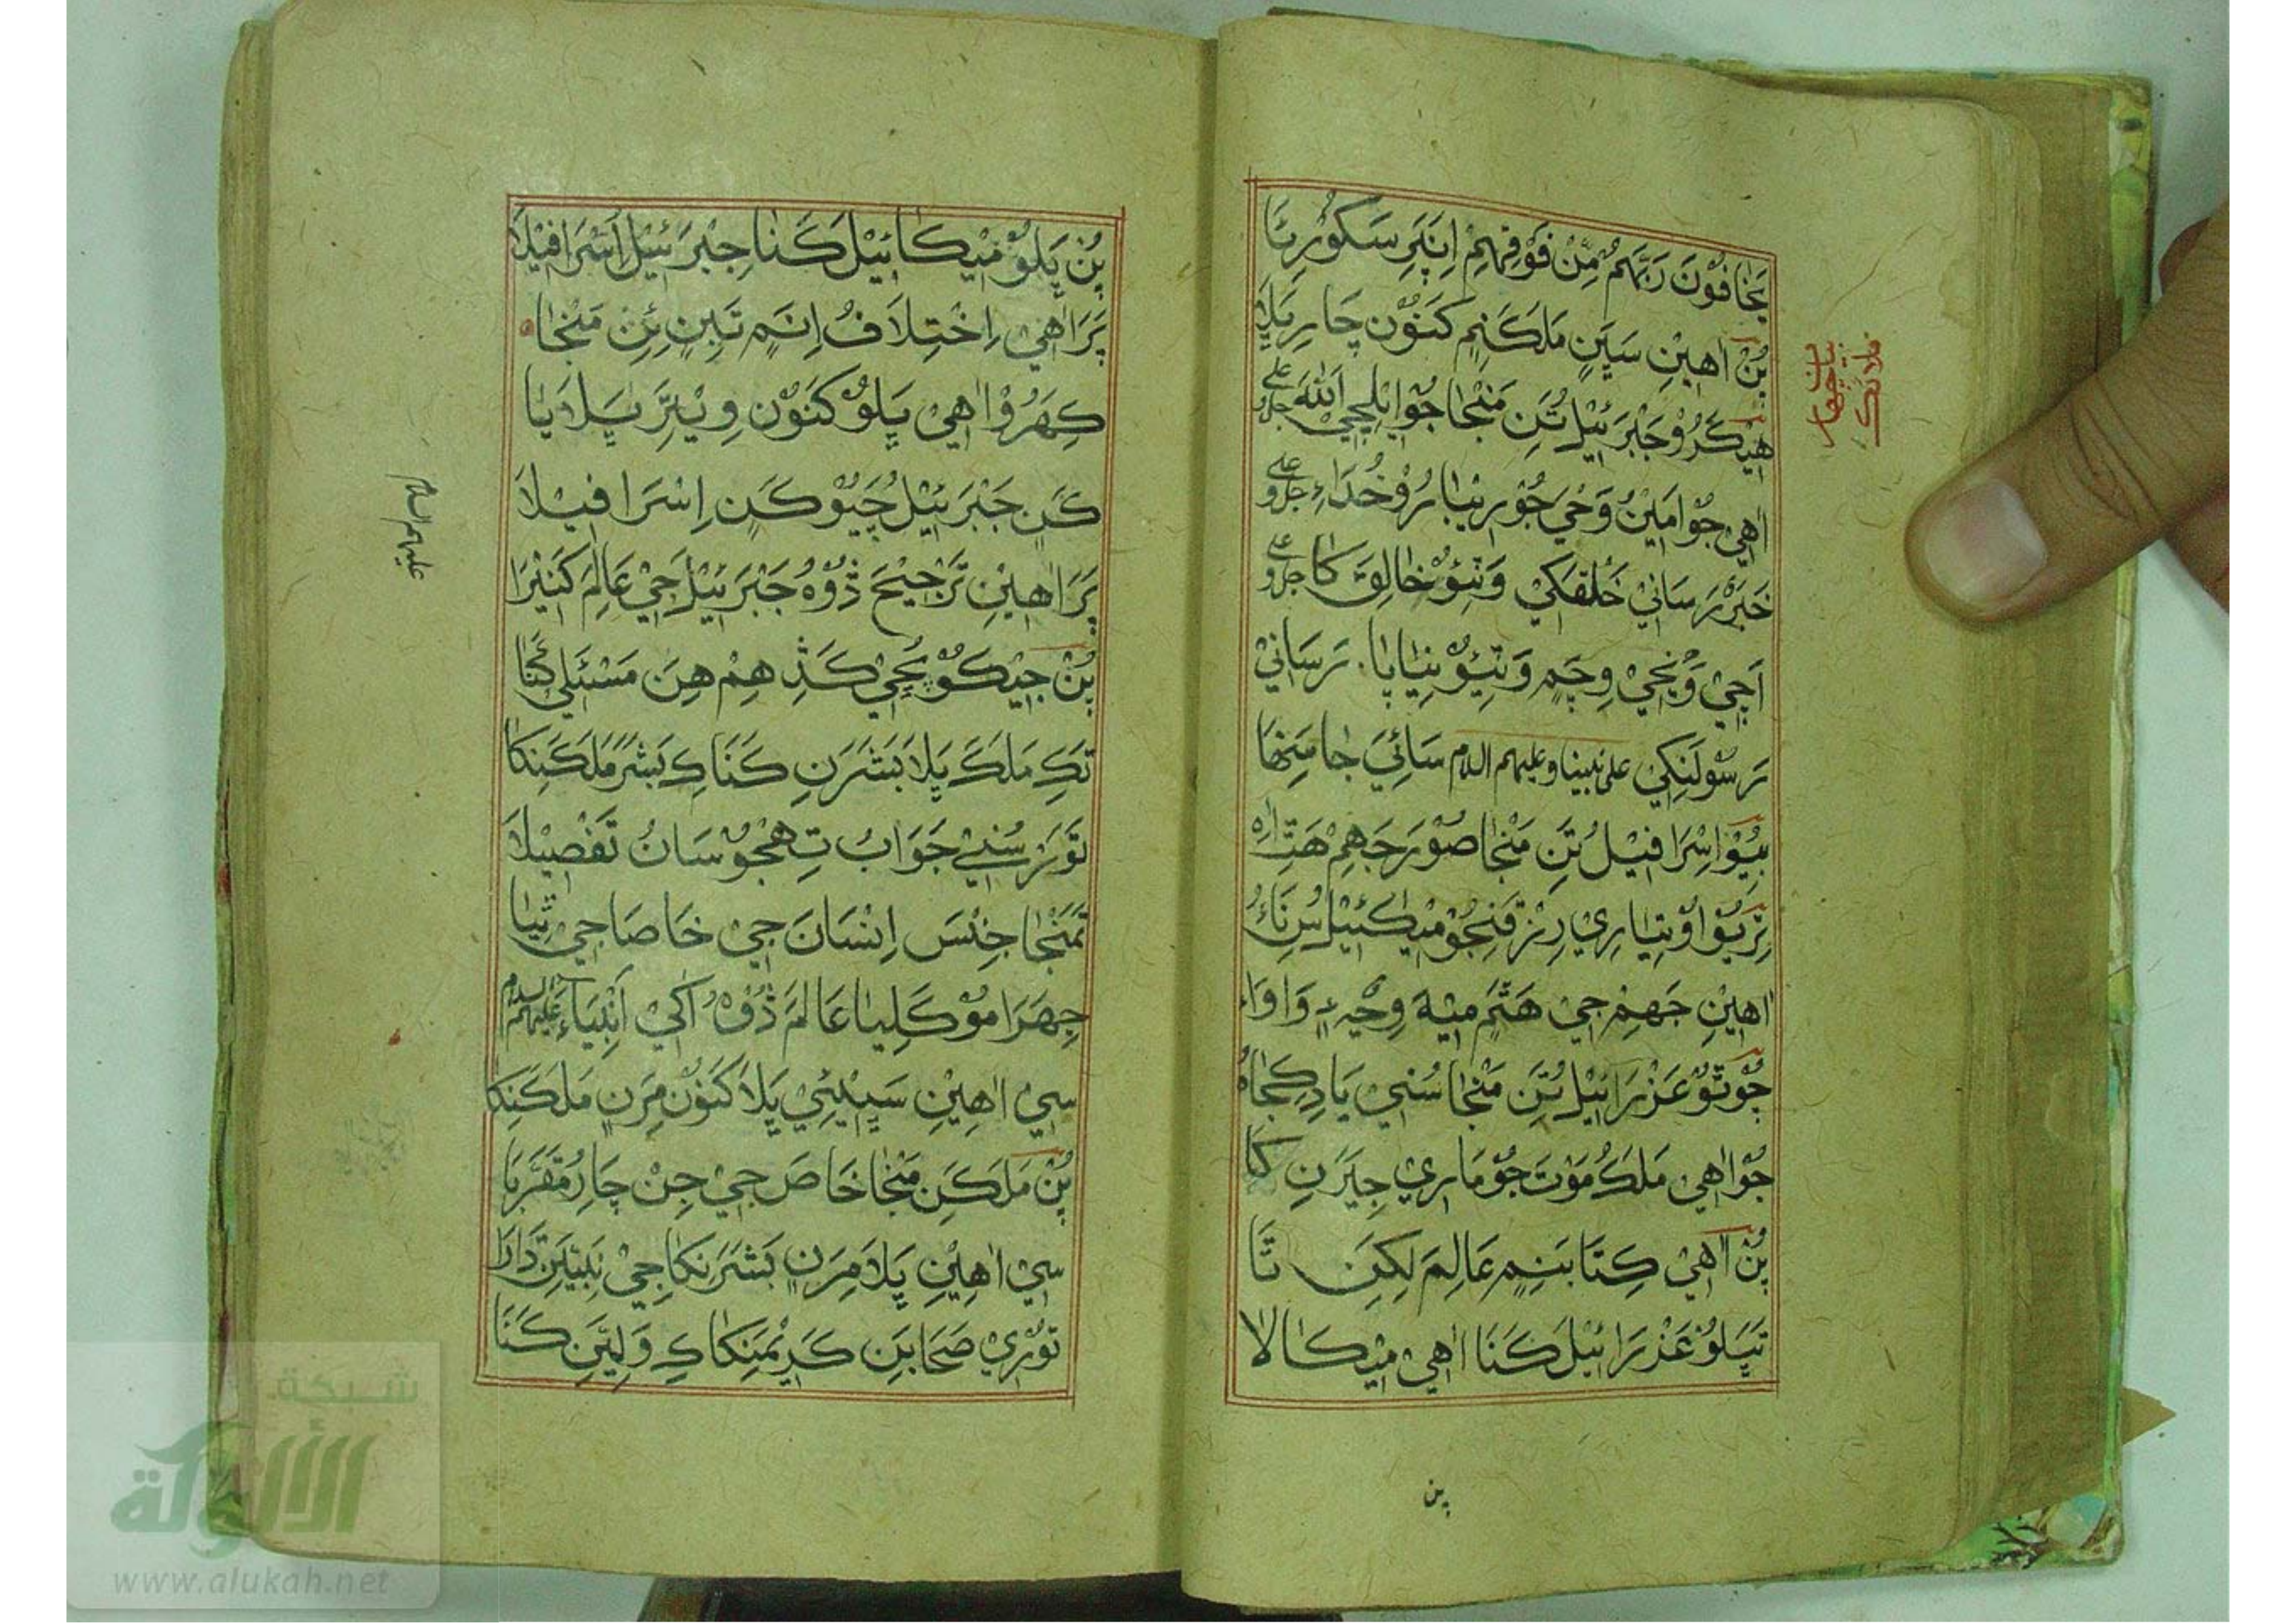 يَخَافُوْنَ رَبَّهُمْ مِّنْ فَوْقِهِمْ اِنَپَرِ سَكورِيَا
پُنْ اٰهِيْنِ سَڀَنِ مَلَكَنِمِ كَنَوُنْ چَارِ ڀَلَا
هيڪَڙُو جَبْرَئِيْلُ تَنِ مَنْجَا جُو ايلچِي اللهَ جل وعلى
اٰهِي جُو اَمِيْنُ وَحْيَ جُو رِيْبَارُو خُدَاءِ جل وعلى
خَبَرَ رَسَانِيْ خَلْقَكِيْ وَٺِئو خَالِقَ كَا جل وعلى
اَچِيْ وَڃِيْ وِچَمِ وَٺِيو نِيَاپَا رَسَانِيْ
رَسُوْلَنِكِيْ على نبينا وعليهم السلام سَائِيَ جَا مِنْهَا
ٻِيُوْ اِسْرَافِيْلُ تَنِ مَنْجَا صُوْرَ جَهِمْ هَتَاهِ
ٽِريُوْ اُوْپِيَارِيْ رِزْقَنِجُوْ مِيْكَئِيْلُ سُنَاءُ
اٰهِيْنِ جَهِمْ جِيْ هَٿَمِ مِيْهَ وِڄَهِ وَاوَاءَ
چُوٿوُ عَزْرَائِيْلُ تَنِ مَنْجَا سُنِي يَادِ كِجَاهُ
جُو اٰهِيْ مَلَكُ مَوْتَ جُوْ مَارِيْ جِيَرَنِ كَا
پُنْ اٰهِيْ كِتَابَنِمِ عَالِمَ لِكِنِ تَا
تَڀَلُوْ عَزْرَائِيْلَ كَنَا اٰهِيْ مِيْكَالَا
پن
پُنْ ڀَلُوْ مِيْكَائِيْلَ كَنَا جِبْرَئِيْلَ اِسْرَافِيْلَا
پَرَ اٰهِيْ اِخْتِلَافُ اِنَمِ تَنِ ٻِنِ مَنْجَا
كِهَرُوْ اٰهِيْ ڀَلُوْ كَنَوُنْ وِيْتَرِ ڀَلَا ڀَا
كَنِ جَبْرَئِيْلُ چَيُوْ كَنِ اِسْرَافِيْلَا
پَرَ اٰهِيْنِ تَرْجِيْحَ ڏُوْهُ جَبْرَئِيْلَ جِيْ عَالِمَ كَنِيْرَا
پُنْ جِيْكُوْ پُڇِيْ كَڏِهِمْ هِنَ مَسْئَلِي كَنَا
تَكِ مَلَكَ ڀَلَا بَشَرَنِ كَنَا كِ بَشَرَ مَلَكَنِكَا
تَوُ سُنِيْ جَوَابُ تِهَجُوْ سَانُ تَفْصِيْلَا
تَمَنْجَا جِنْسَ اِنْسَانَ جِيْ خَاصَا جِيْ ٿِيَا
جِهَرَا مُوْكَلِيَا عَالَمَ ڏُوْهُ اُكِيْ اَنْبِيَاءَ عليهم السلام
سِيْ اٰهِيْنِ سَڀِيْئِيْ ڀَلَا كَنَوُنْ مِرَنِ مَلَكَنِكَا
پُنْ مَلَكَنِ مَنْجَا خَاصَ جِيْ جِنْ چَارِ مُقَرَّبَا
سِيْ اٰهِيْنِ ڀَلَا مِرَنِ بَشَرَنِكَا جِيْ نَبِيَنِ دَارَا
تَوُرِيْ صَحَابَنِ كَرِيْمَنِكَا كِ وَلِيَنِ كَنَا
عليهم السلام
شبكة
الألوكة
www.alukah.net